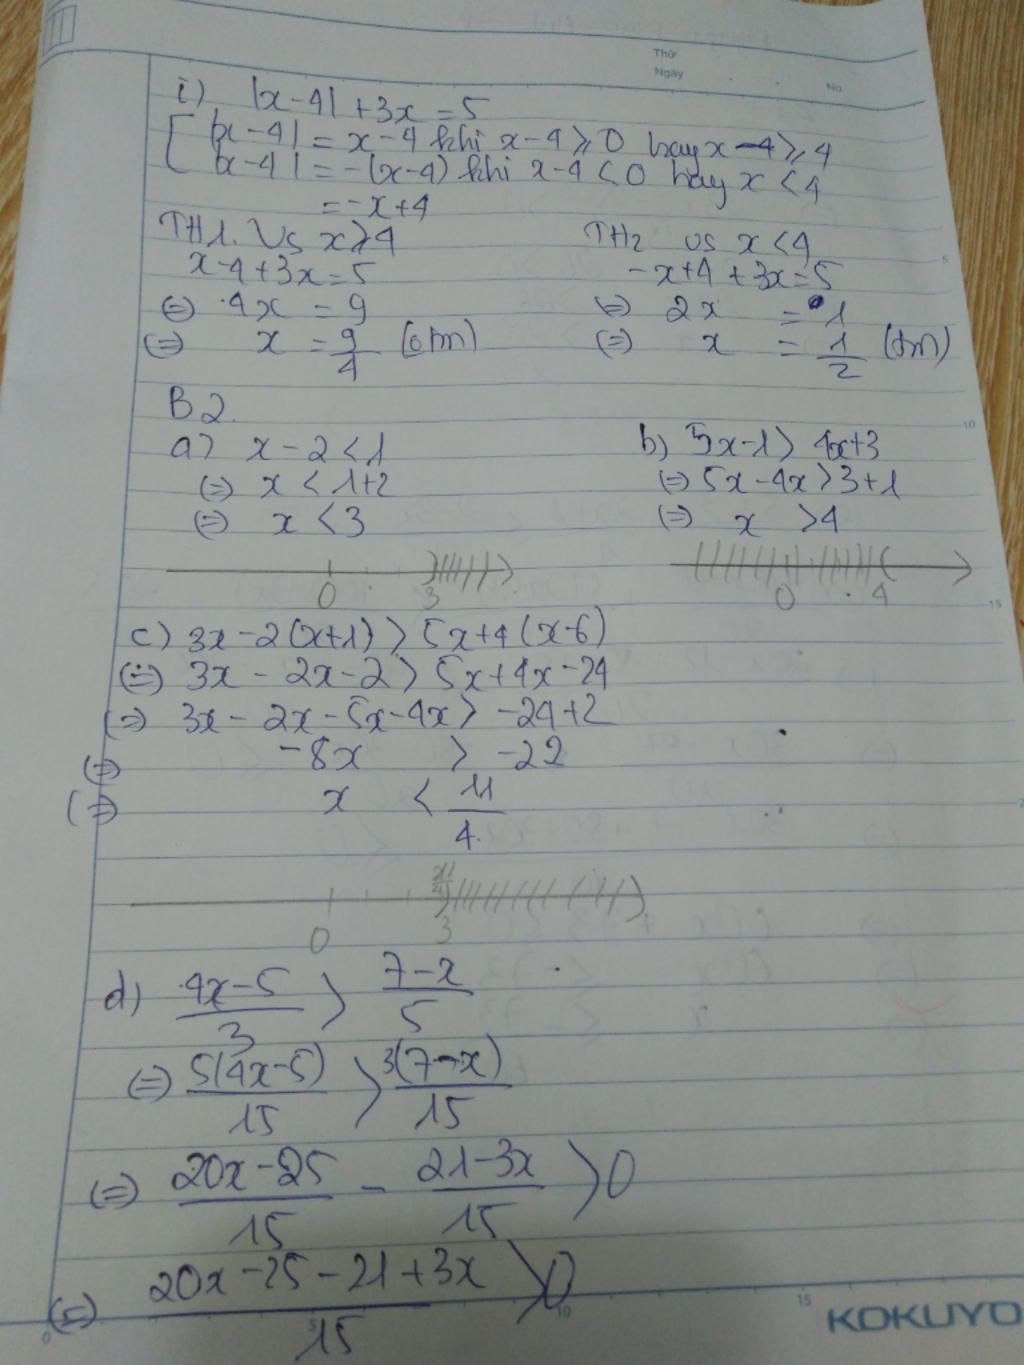 Thứ
Ngày
No.
i) |x-4| + 3x = 5
[ |x-4| = x-4 khi x-4 ≥ 0 hay x-4 ≥ 4
|x-4| = -(x-4) khi x-4 < 0 hay x < 4
= -x+4
TH1. Vs x ≥ 4 TH2 vs x < 4
x-4+3x=5 -x+4+3x=5
(=) 4x = 9 (=) 2x = 1
(=) x = 9/4 (otm) (=) x = 1/2 (tm)
B2
a) x-2<1 b) 5x-1 > 4x+3
(=) x < 1+2 (=) 5x-4x>3+1
(=) x < 3 (=) x > 4
0 3 0 4
c) 3x-2(x+1) > 5x+4(x-6)
(=) 3x - 2x-2 > 5x+4x-24
(=) 3x - 2x-5x-4x > -24+2
(=) -8x > -22
(=) x < 11/4
11/4
0 3
d) 4x-5/3 > 7-x/5
(=) 5(4x-5)/15 > 3(7-x)/15
(=) 20x-25/15 - 21-3x/15 > 0
(=) 20x-25-21+3x/15 > 0
KOKUYO